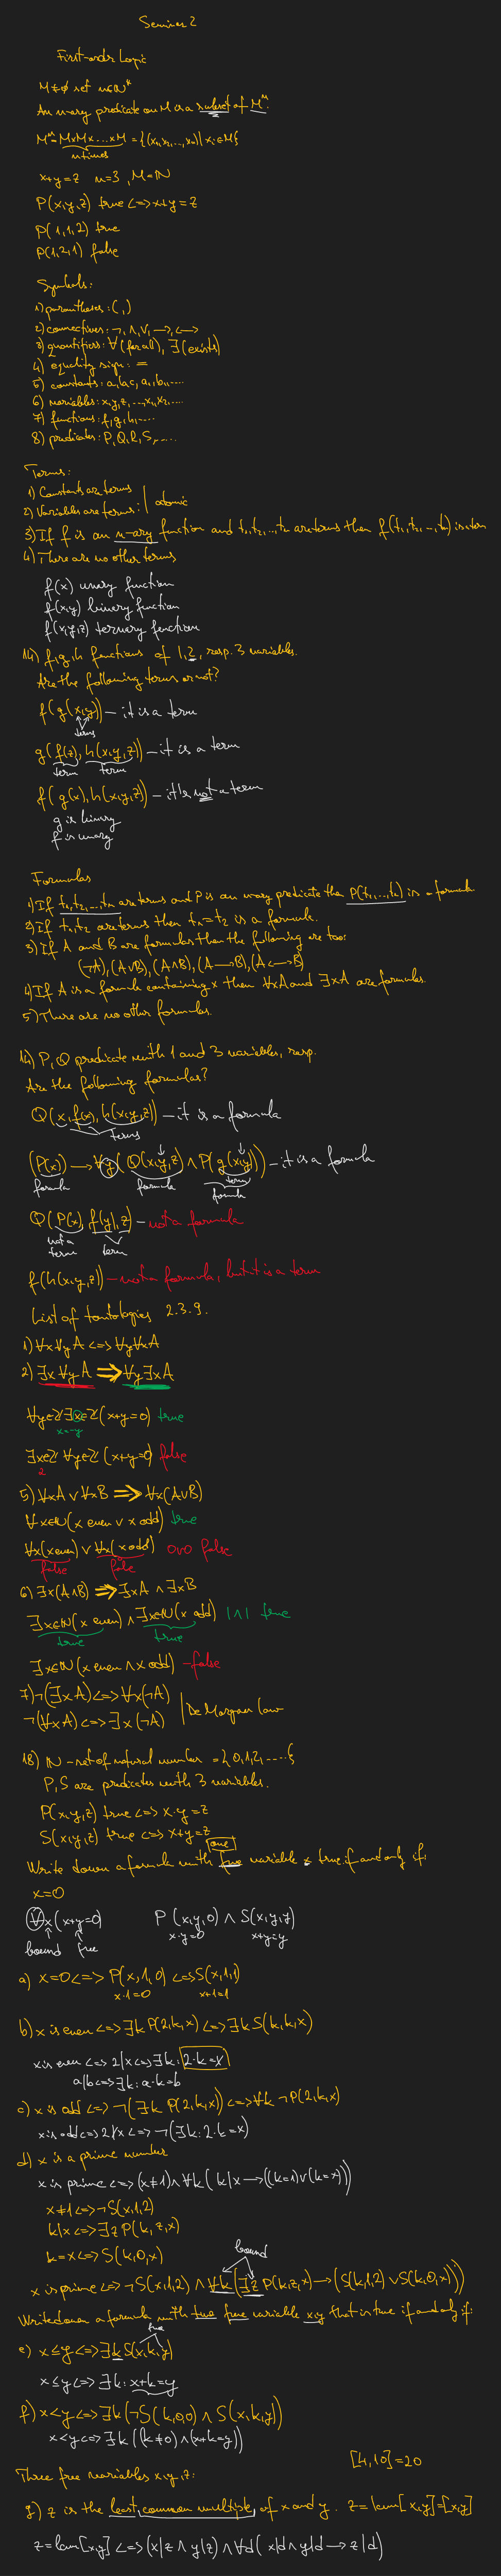 Seminar 2
First-order Logic
M≠∅ set n∈ℕ*
An n-ary predicate on M is a subset of Mⁿ.
Mⁿ=M×M×...×M = {(x₁,x₂,...,xₙ)| xᵢ∈M}
n times
x+y=z n=3, M=ℕ
P(x,y,z) true <=> x+y=z
P(1,1,2) true
P(1,2,1) false
Symbols:
1) parantheses: (,)
2) connectives: ¬,∧,∨,→,<->
3) quantifiers: ∀(for all), ∃(exists)
4) equality sign: =
5) constants: a,b,c, a₁,b₁,...
6) variables: x,y,z,...,x₁,x₂,...
7) functions: f,g,h,...
8) predicates: P,Q,R,S,...
Terms:
1) Constants are terms
2) Variables are terms: | atomic
3) If f is an n-ary function and t₁,t₂,...,tₙ are terms then f(t₁,t₂,..,tₙ) is a term
4) There are no other terms
f(x) unary function
f(x,y) binary function
f(x,y,z) ternary function
14) f,g,h functions of 1,2, resp. 3 variables.
Are the following terms or not?
f(g(x,y)) – it is a term
terms
g(f(z), h(x,y,z)) – it is a term
term term
f(g(x), h(x,y,z)) – it is not a term
g is binary
f is unary
Formulas
1) If t₁,t₂,...,tₙ are terms and P is an n-ary predicate then P(t₁,...,tₙ) is a formula
2) If t₁,t₂ are terms then t₁=t₂ is a formula.
3) If A and B are formulas then the following are too:
(¬A), (A∨B), (A∧B), (A→B), (A<->B)
4) If A is a formula containing x then ∀xA and ∃xA are formulas.
5) There are no other formulas.
14) P,Q predicate with 1 and 3 variables, resp.
Are the following formulas?
Q(x, f(x), h(x,y,z)) – it is a formula
terms
(P(x) → ∀y (Q(x,y,z) ∧ P(g(x,y)))) – it is a formula
formula formula term
formula
Q(P(x), f(y), z) – not a formula
not a term
term
f(h(x,y,z)) – not a formula, but it is a term
List of tautologies 2.3.9.
1) ∀x∀yA <=> ∀y∀xA
2) ∃x∀yA => ∀y∃xA
∀y∈ℤ ∃x∈ℤ (x+y=0) true
x=-y
∃x∈ℤ ∀y∈ℤ (x+y=0) false
2
5) ∀xA ∨ ∀xB => ∀x(A∨B)
∀x∈ℕ (x even ∨ x odd) true
∀x(x even) ∨ ∀x(x odd) 0∨0 false
false false
6) ∃x(A∧B) => ∃xA ∧ ∃xB
∃x∈ℕ(x even) ∧ ∃x∈ℕ(x odd) 1∧1 true
true true
∃x∈ℕ(x even ∧ x odd) – false
7) ¬(∃xA) <=> ∀x(¬A)
¬(∀xA) <=> ∃x(¬A) | De Morgan law
18) ℕ – set of natural number = {0,1,2,....}
P,S are predicates with 3 variables.
P(x,y,z) true <=> x·y=z
S(x,y,z) true <=> x+y=z
one
Write down a formula with free variable x true if and only if:
x=0
∀x (x+y=0) P(x,y,0) ∧ S(x,y,y)
bound free x·y=0 x+y=y
a) x=0 <=> P(x,1,0) <=> S(x,1,1)
x·1=0 x+1=1
b) x is even <=> ∃k P(2,k,x) <=> ∃k S(k,k,x)
x is even <=> 2|x <=> ∃k: 2·k=x
a|b <=> ∃k: a·k=b
c) x is odd <=> ¬(∃k P(2,k,x)) <=> ∀k ¬P(2,k,x)
x is odd <=> 2∤x <=> ¬(∃k: 2·k=x)
d) x is a prime number
x is prime <=> (x≠1) ∧ ∀k( k|x → ((k=1)∨(k=x)))
x≠1 <=> ¬S(x,1,2)
k|x <=> ∃z P(k,z,x)
k=x <=> S(k,0,x)
bound
x is prime <=> ¬S(x,1,2) ∧ ∀k(∃z P(k,z,x) → (S(k,1,2) ∨ S(k,0,x)))
Write down a formula with two free variable x,y that is true if and only if:
free
e) x≤y <=> ∃k S(x,k,y)
x≤y <=> ∃k: x+k=y
f) x<y <=> ∃k(¬S(k,0,0) ∧ S(x,k,y))
x<y <=> ∃k ((k≠0) ∧ (x+k=y))
[4,10]=20
Three free variables x,y,z:
g) z is the least common multiple of x and y. z=lcm[x,y]=[x,y]
z=lcm[x,y] <=> (x|z ∧ y|z) ∧ ∀d( x|d ∧ y|d → z|d)